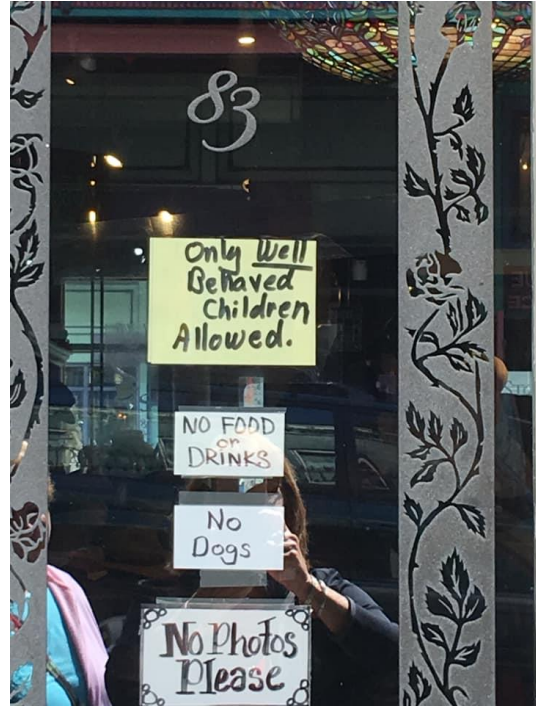 83
Only Well
Behaved
Children
Allowed.
NO FOOD
or
DRINKS
No
Dogs
No Photos
Please